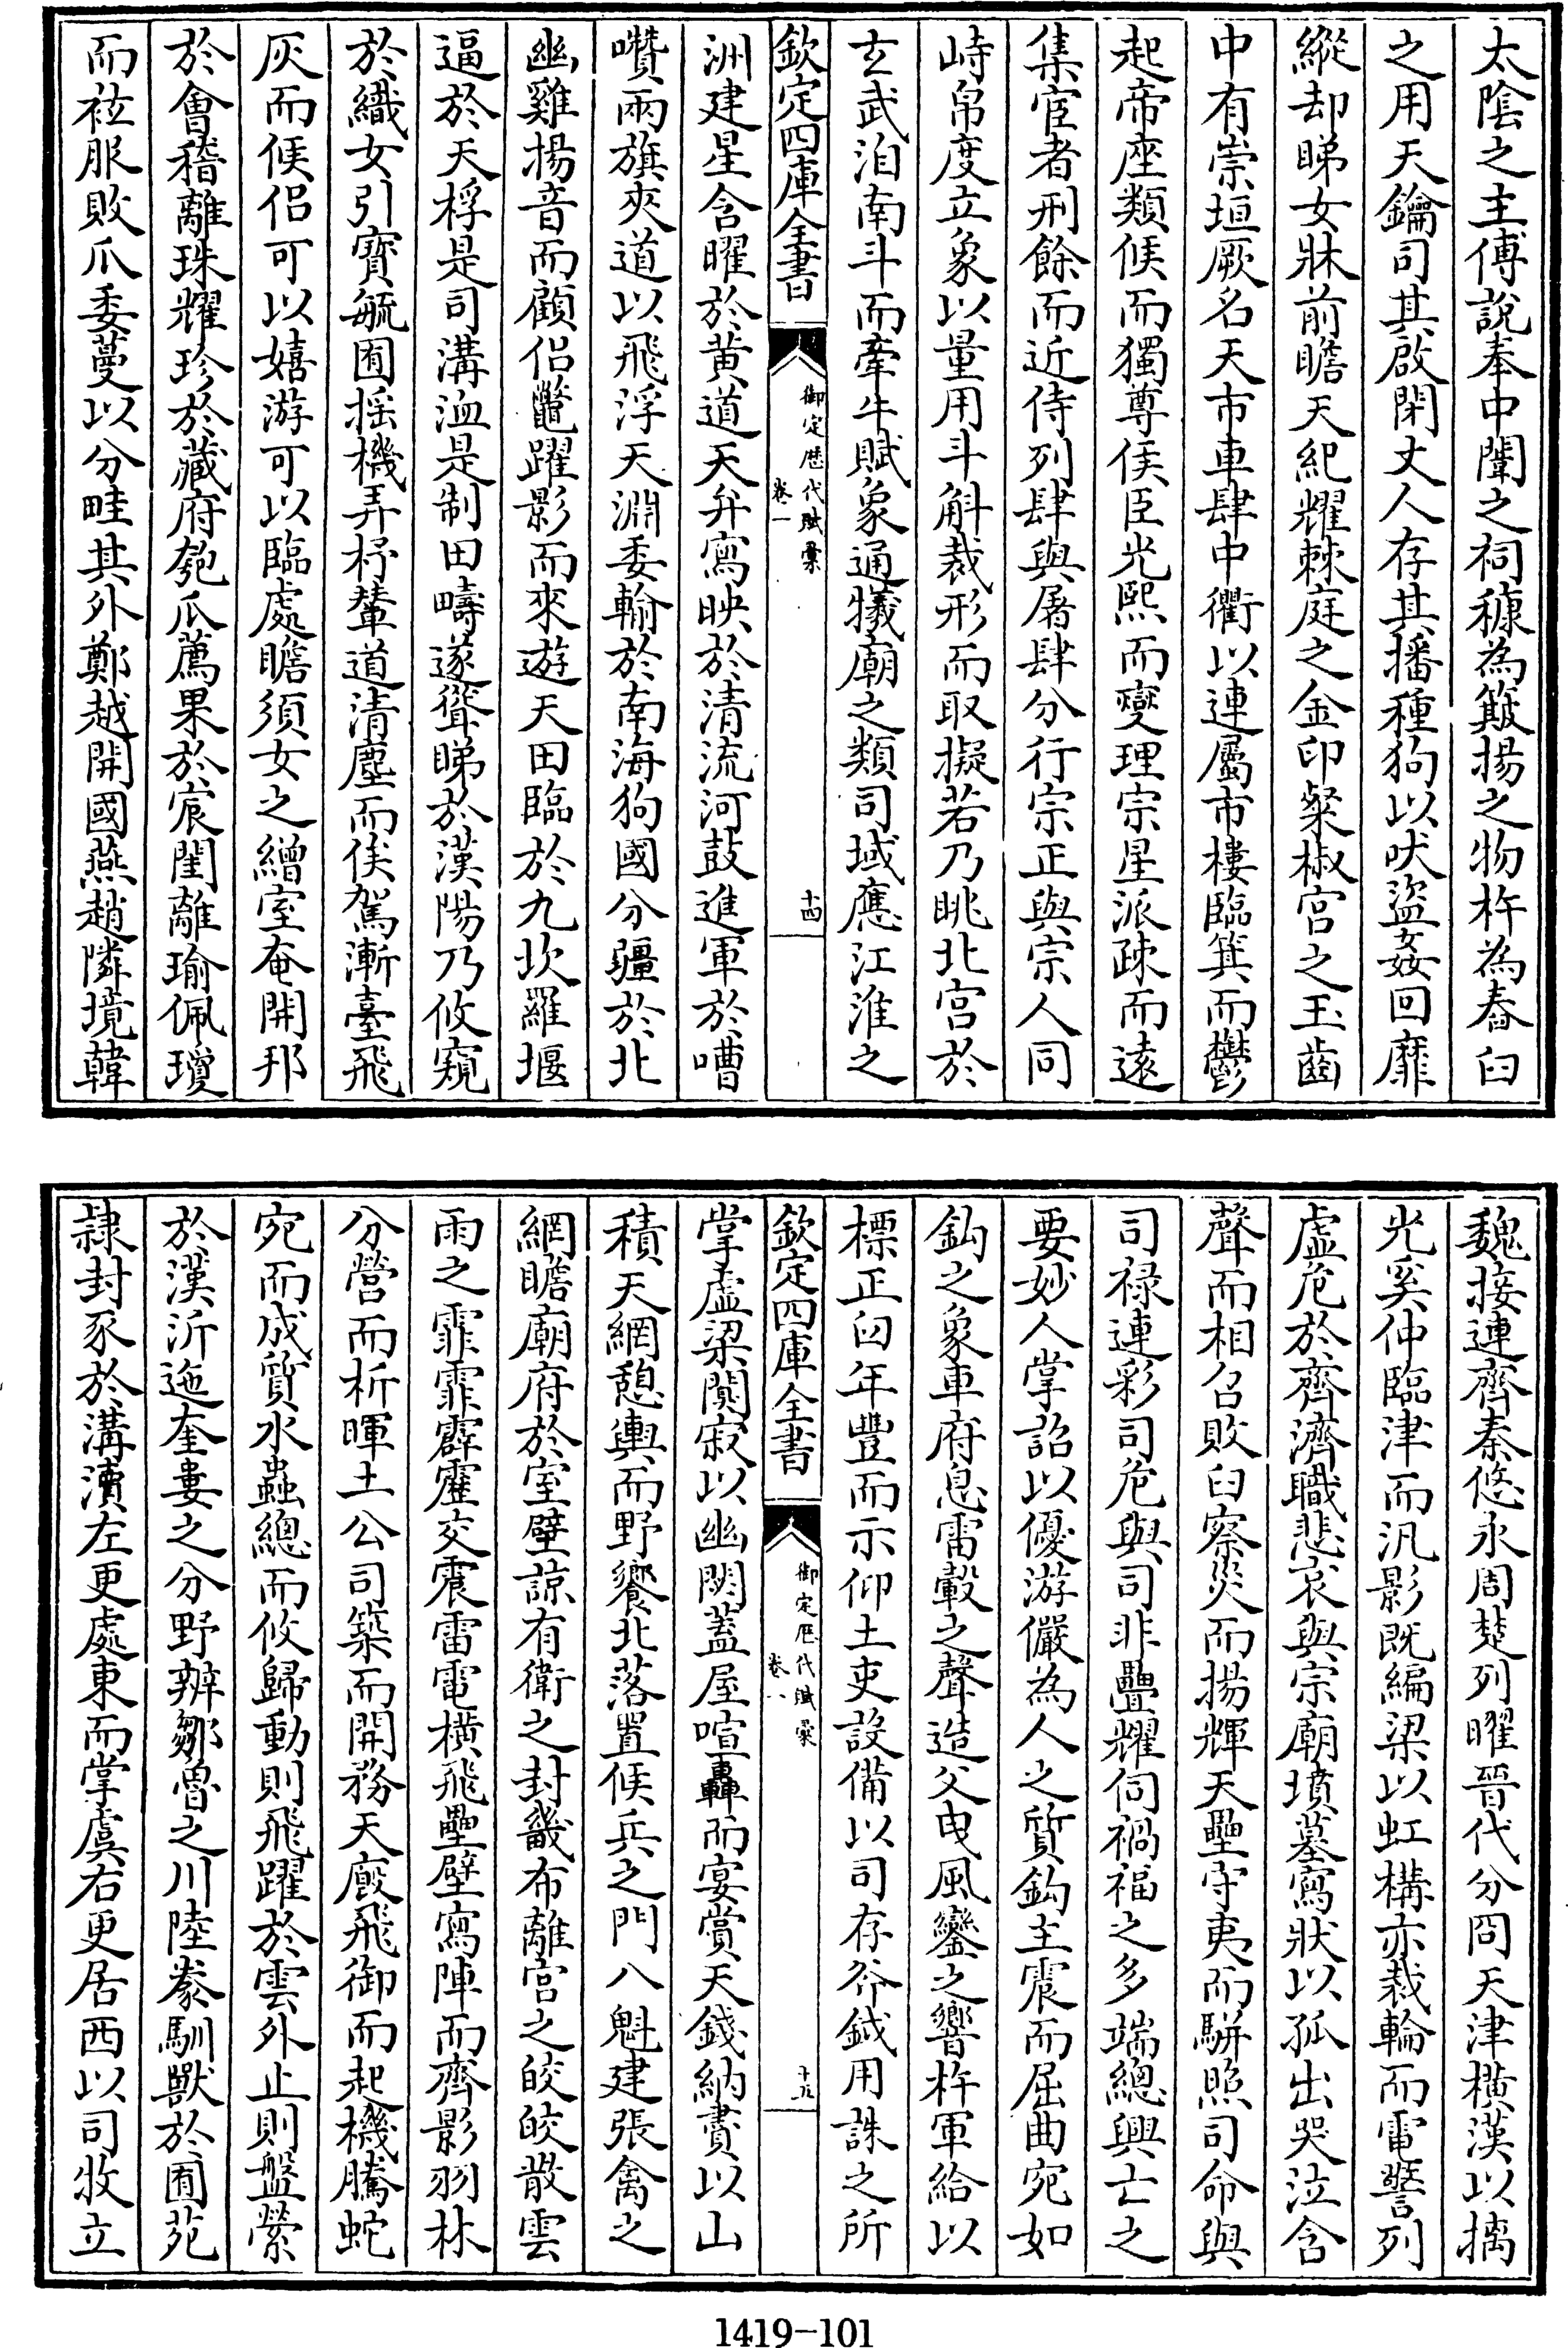 太陰之主傅說奉中闈之祠糠為簸揚之物杵為舂臼
之用天鑰司其啟閉丈人存其播種狗以吠盜姦回靡
縱却睇女牀前瞻天紀耀棘庭之金印粲椒宫之玉齒
中有崇垣厥名天市車肆中衢以連屬市樓臨箕而鬱
起帝座類候而獨尊侯臣光熙而變理宗星派疎而遠
集宦者刑餘而近侍列肆與屠肆分行宗正與宗人同
峙帛度立象以量用斗斛裁形而取擬若乃眺北宫於
玄武洎南斗而牽牛賦象通犧廟之類司域應江淮之
欽定四庫全書
御定歴代賦彚
卷一
十四
洲建星含曜於黄道天弁寫映於清流河鼓進軍於嘈
囋兩旗夾道以飛浮天淵委輸於南海狗國分疆於北
幽雞揚音而顧侣鼈躍影而來遊天田臨於九坎羅堰
逼於天桴是司溝洫是制田疇遂聳睇於漢陽乃攸窺
於織女引寶毓囿摇機弄杼輦道清塵而俟駕漸臺飛
灰而候侣可以嬉游可以臨處瞻須女之繒室奄開邦
於會稽離珠耀珍於藏府匏瓜薦果於宸閨離瑜佩瓊
而袨服敗瓜委蔓以分畦其外鄭越開國燕趙隣境韓
魏接連齊秦悠永周楚列曜晉代分冏天津横漢以摛
光奚仲臨津而汎影既編梁以虹構亦裁輪而電警列
虚危於齊濟職悲哀與宗廟墳墓寫狀以孤出哭泣含
聲而相召敗臼察災而揚輝天壘守夷而駢照司命與
司禄連彩司危與司非疊耀伺禍福之多端總興亡之
要妙人掌詔以優游儼為人之質鈎主震而屈曲宛如
鈎之象車府息雷轂之聲造父曳風鑾之響杵軍給以
標正臼年豐而示仰土吏設備以司存斧鉞用誅之所
欽定四庫全書
御定歴代賦彚
卷一
十五
掌虚梁闃寂以幽閟蓋屋喧轟而宴賞天錢納賮以山
積天綱憩輿而野饗北落置候兵之門八魁建張禽之
網瞻廟府於室壁諒有衛之封畿布離宫之皎皎散雲
雨之霏霏霹靂交震雷電横飛壘壁寫陣而齊影羽林
分營而析暉土公司築而開務天廄飛御而起機騰蛇
宛而成質水蟲總而攸歸動則飛躍於雲外止則盤縈
於漢沂迤奎婁之分野辨鄒魯之川陸豢馴獸於囿苑
隷封豕於溝瀆左更處東而掌虞右更居西以司牧立
1419-101